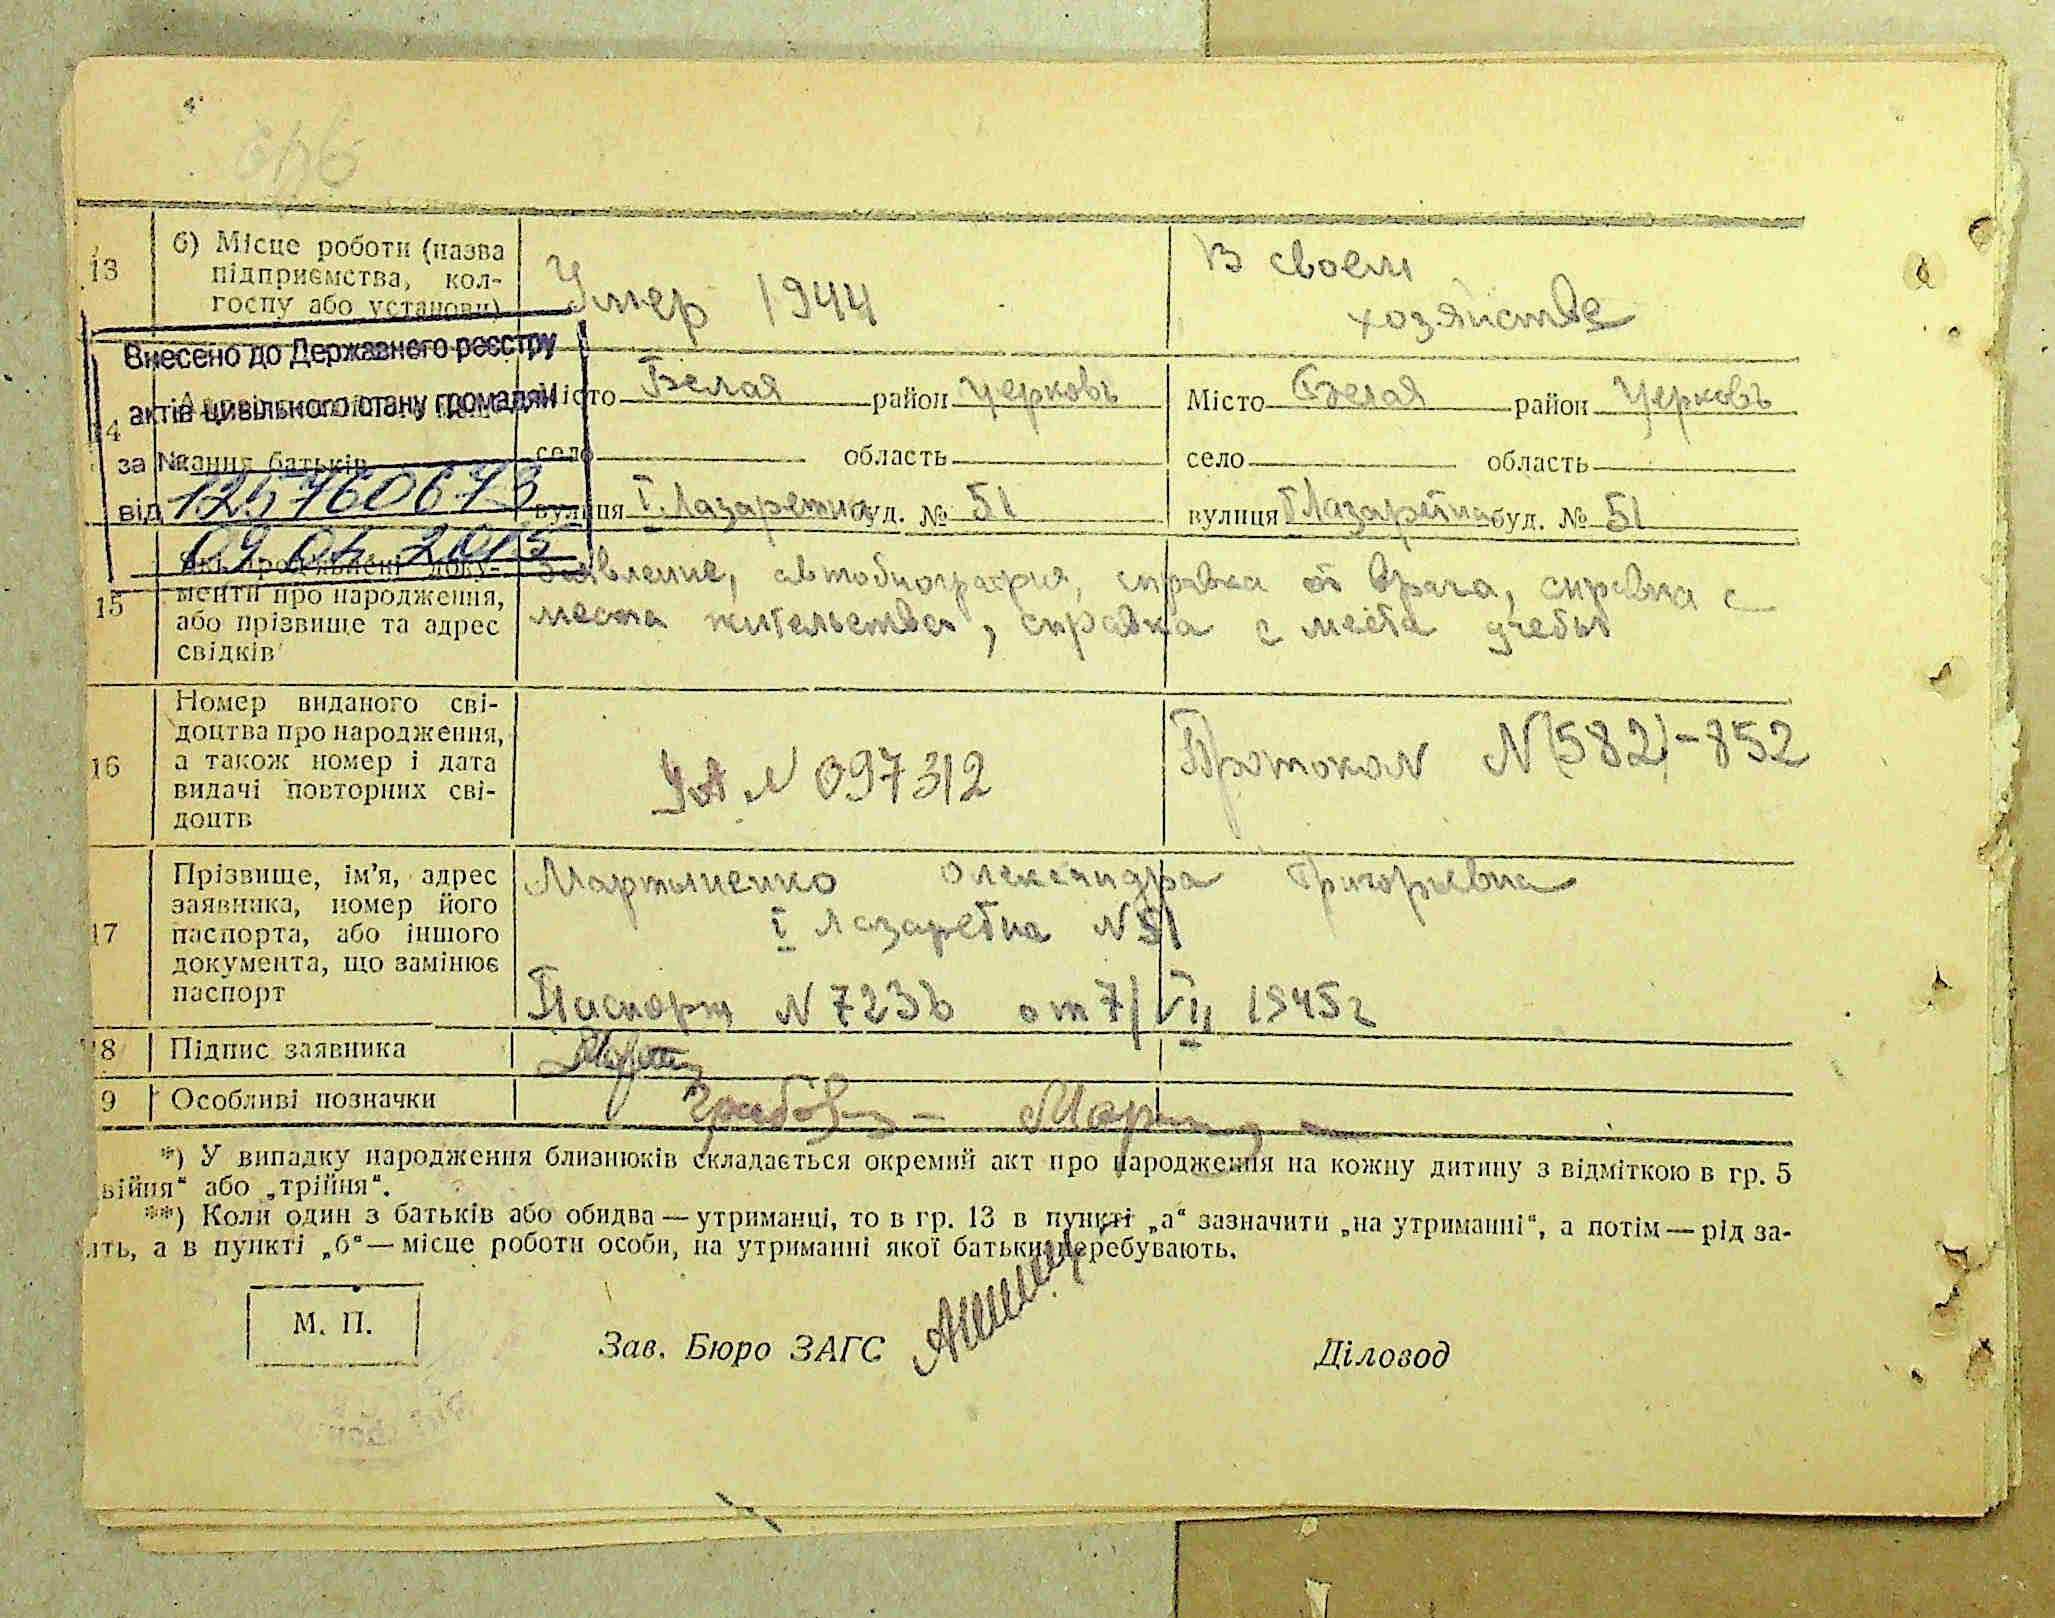 13
б) Місце роботи (назва
підприємства, кол-
госпу або установи)
Умер 1944
В своем
хозяйстве
Внесено до Державного реєстру
актів цивільного стану громадян
за №
125760673
від
09 04 2015
4
Місто Белая район Церковь
село область
вулиця I Лазаретна буд. № 51
Місто Белая район Церковь
село область
вулиця I Лазаретна буд. № 51
15
доку-
менти про народження,
або прізвище та адрес
свідків
Заявление, автобиография, справка от врача, справка с
места жительства, справка с места учебы
16
Номер виданого сві-
доцтва про народження,
а також номер і дата
видачі повторних сві-
доцтв
УА N 097312
Протокол N (582)-852
17
Прізвище, ім'я, адрес
заявника, номер його
паспорта, або іншого
документа, що замінює
паспорт
Мартыненко Олександра Григорьевна
I Лазаретна N 51
Паспорт N 7236 от 7/VII 1945 г
18 Підпис заявника
9 Особливі позначки
*) У випадку народження близнюків складається окремий акт про народження на кожну дитину з відміткою в гр. 5
війня“ або „трійня“.
**) Коли один з батьків або обидва — утриманці, то в гр. 13 в пункті „а“ зазначити „на утриманні“, а потім — рід за-
ять, а в пункті „б“ — місце роботи особи, на утриманні якої батьки перебувають.
М. П.
Зав. Бюро ЗАГС
Діловод